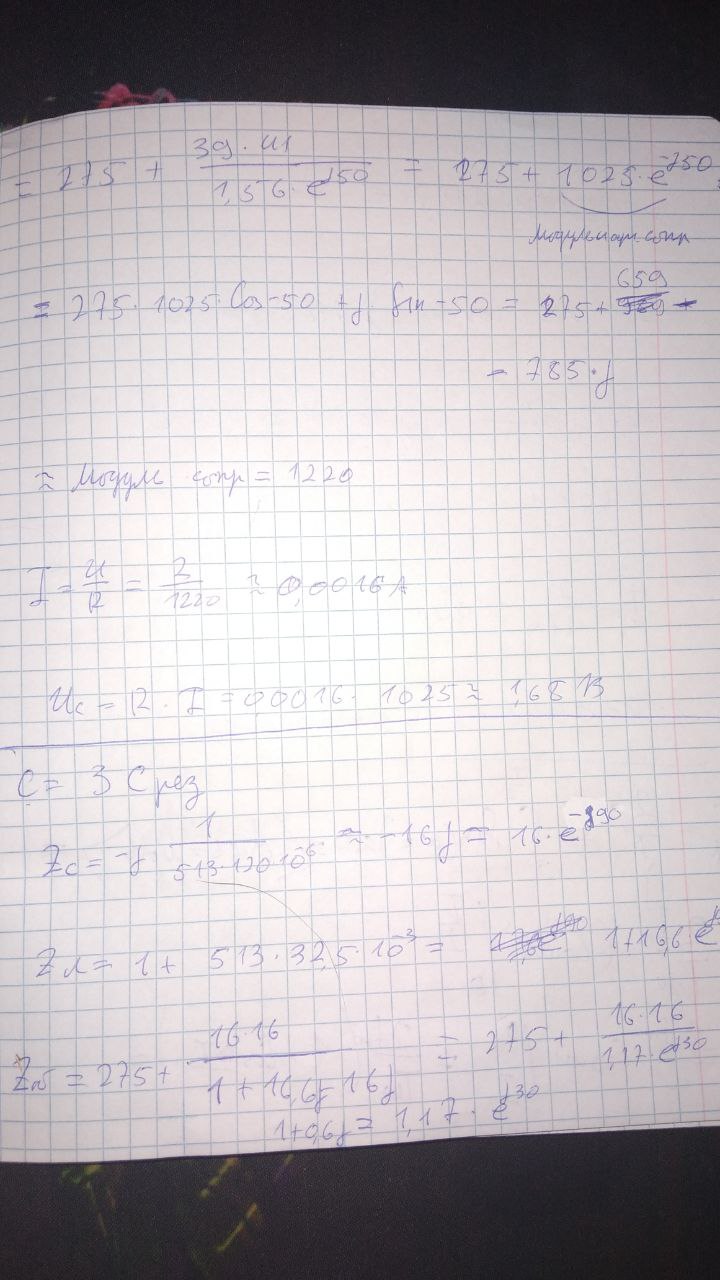 = 275 + 39·41 / 1,56·e^j50 = 275 + 1025·e^-j50 =
модуль сопр
= 275·1025·Cos-50 + j Sin-50 = 275 + 659 -
- 785·j
≈ Модуль сопр = 1220
I = U/R = 2/1220 ≈ 0,0016 A
Uc = R·I = 0,0016·1025 ≈ 1,68 В
C = 3 Срез
Zc = -j 1 / 513·120·10^-6 ≈ -16j = 16·e^-j90
Zл = 1 + 513·32,5·10^-3 = 1+16,6·e^j
= 275 + 16·16 / 1+16,6j-16j = 275 + 16·16 / 1,17·e^j30
1+0,6j = 1,17·e^j30